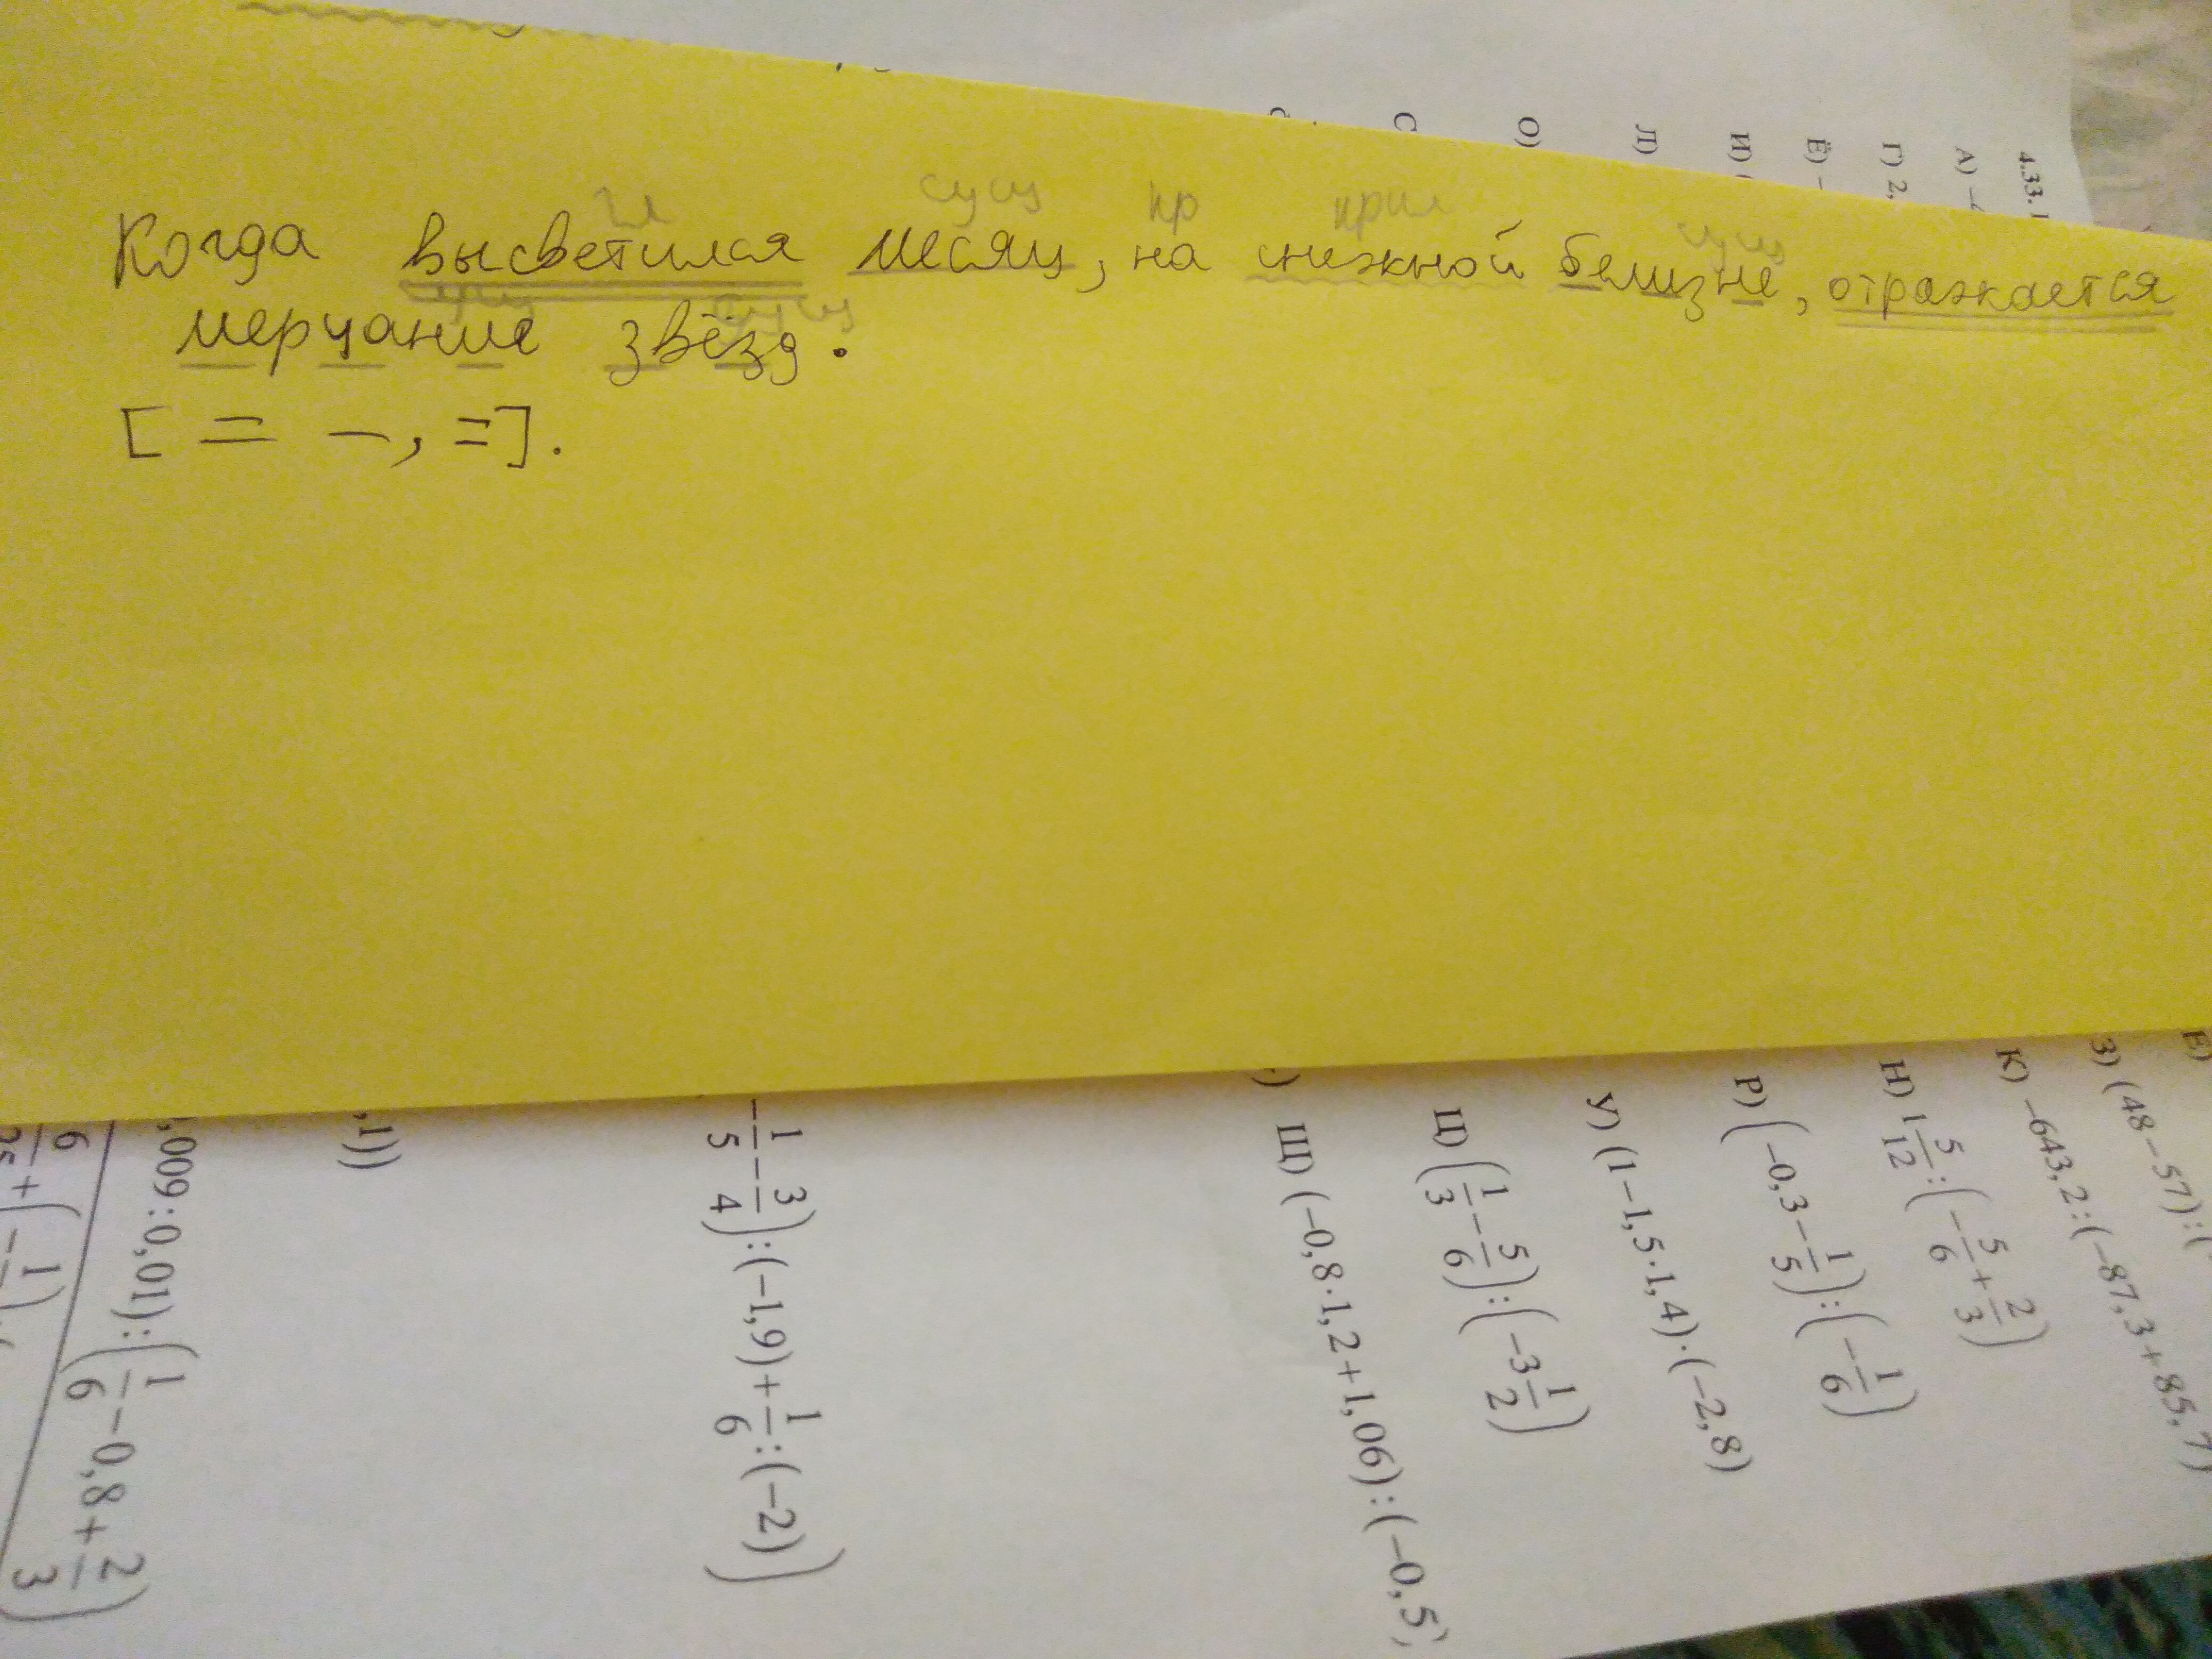 гл сущ пр прил сущ
Когда высветился месяц, на снежной белизне, отражается
сущ сущ
мерцание звёзд.
[ = —, =].
4.33.1
А) –
Г) 2,
Ё) –
И)
Л)
О)
С
Е)
З) (48–57):(
К) –643,2:(–87,3+85,7)
Н) 1 5/12:(–5/6+2/3)
Р) (–0,3–1/5):(–1/6)
У) (1–1,5·1,4)·(–2,8)
Ц) (1/3–5/6):(–3 1/2)
Щ) (–0,8·1,2+1,06):(–0,5)
–1/5–3/4):(–1,9)+1/6:(–2))
,1))
,009:0,01):(1/6–0,8+2/3)